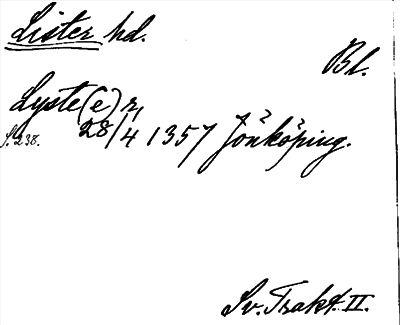 Lister hd.
Bl.
Lyste(e)r,
28/4 1357 Jönköping.
s. 238.
Sv. Trakt. II.